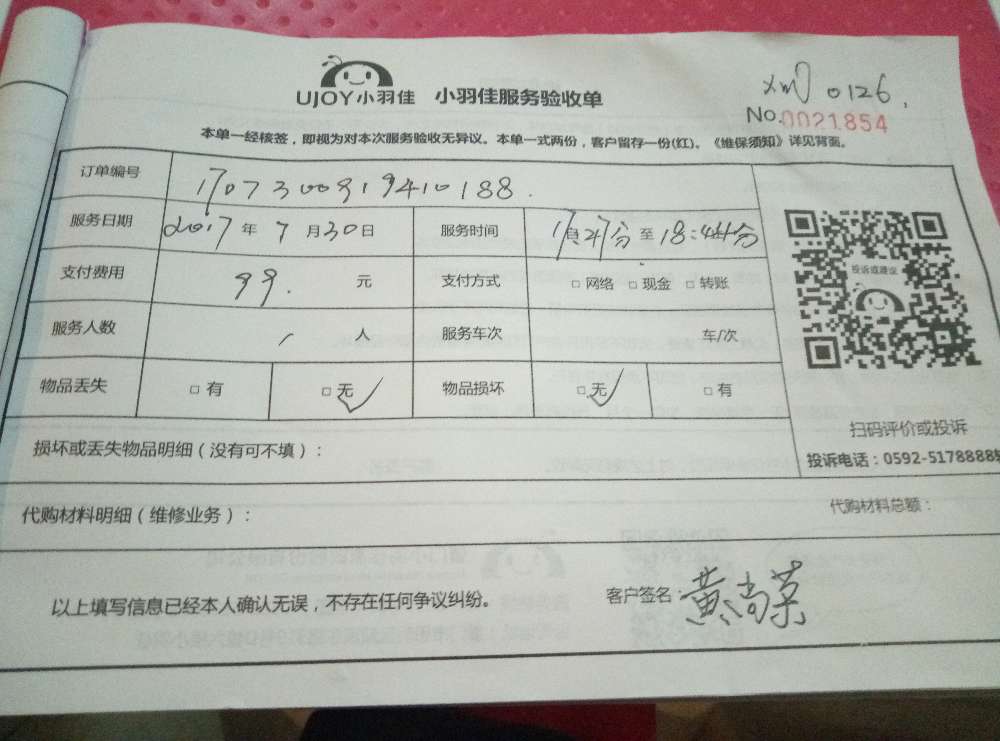 UJOY小羽佳 小羽佳服务验收单
xm 0126
No.0021854
本单一经核签，即视为对本次服务验收无异议。本单一式两份，客户留存一份(红)。《维保须知》详见背面。
订单编号 1707300919410188
服务日期 2017年7月30日 服务时间 至18:44分
支付费用 99. 元 支付方式 □网络 □现金 □转账
投诉或建议
服务人数 1 人 服务车次 车/次
物品丢失 □有 □无✓ 物品损坏 □无✓ □有
扫码评价或投诉
损坏或丢失物品明细（没有可不填）：
投诉电话：0592-5178888
代购材料明细（维修业务）：
代购材料总额：
以上填写信息已经本人确认无误，不存在任何争议纠纷。 客户签名：黄尚荣